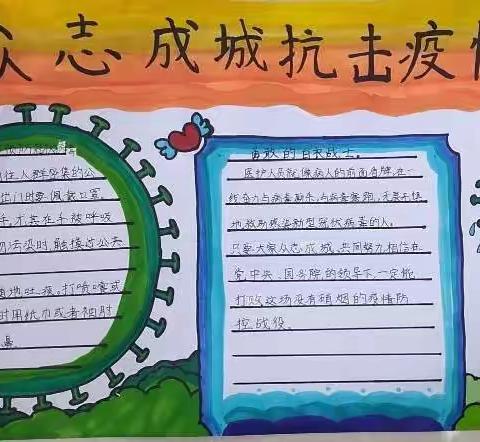 众志成城抗击疫情
往人群密集的公
出门时要佩戴口罩。
手,尤其在手被呼吸
物污染时、触接过公共
随地吐痰。打喷嚏或
时用纸巾或者袖肘
鼻
勇敢的白衣战士。
医护人员就像病人的前面盾牌,在一
线奋力与病毒厮杀,与病毒赛跑,无畏不惧
地救助感染新型冠状病毒的人。
只要大家众志成城,共同努力,相信在
党中央、国务院的领导下,一定能
打败这场没有硝烟的疫情防
控战役。